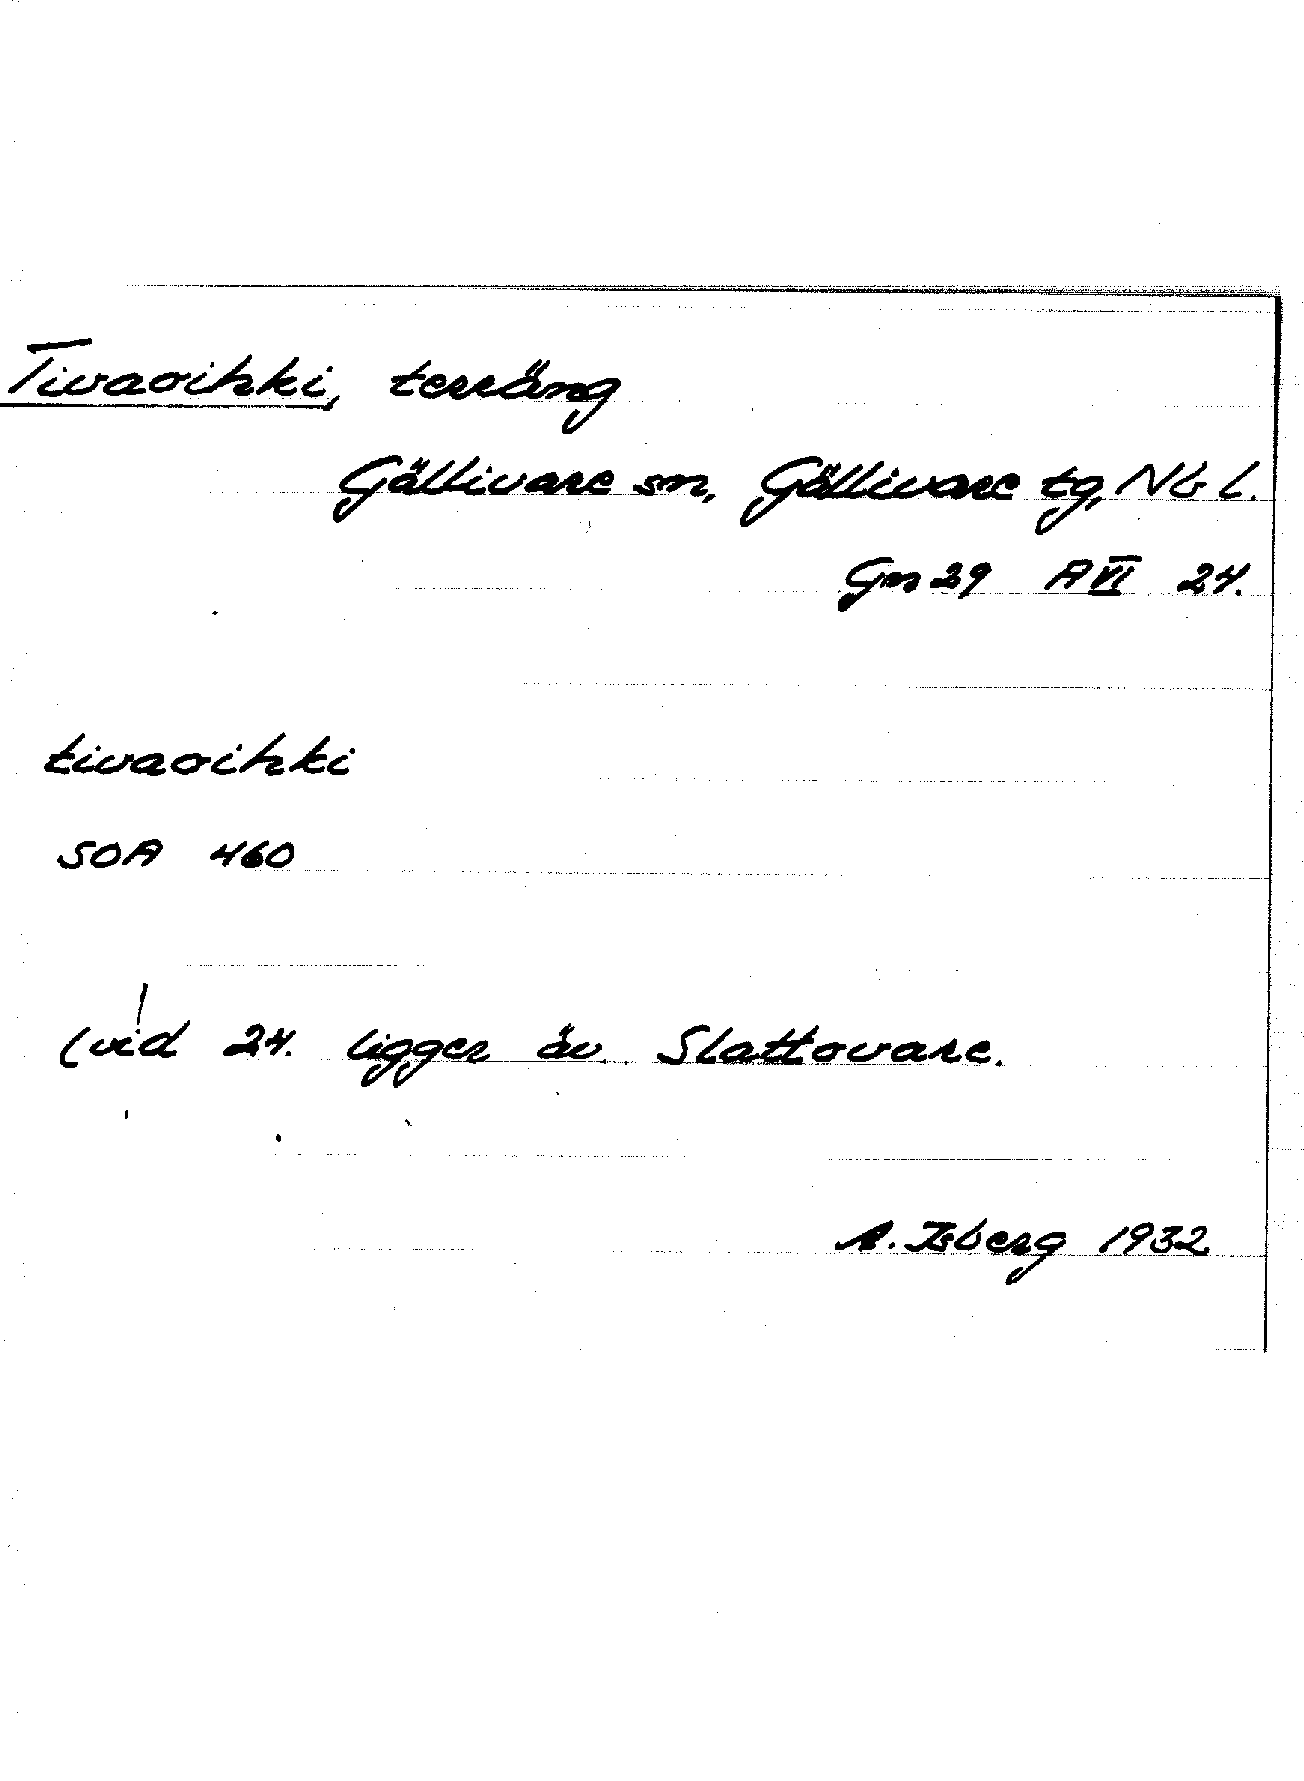 Tivaoihki, terräng
Gällivare sn, Gällivare tg, Nb l.
Gn 29 A VI 24.
tivaoihki
SOA 460
(vid 24. ligger äv Slattovare.
A. Isberg 1932